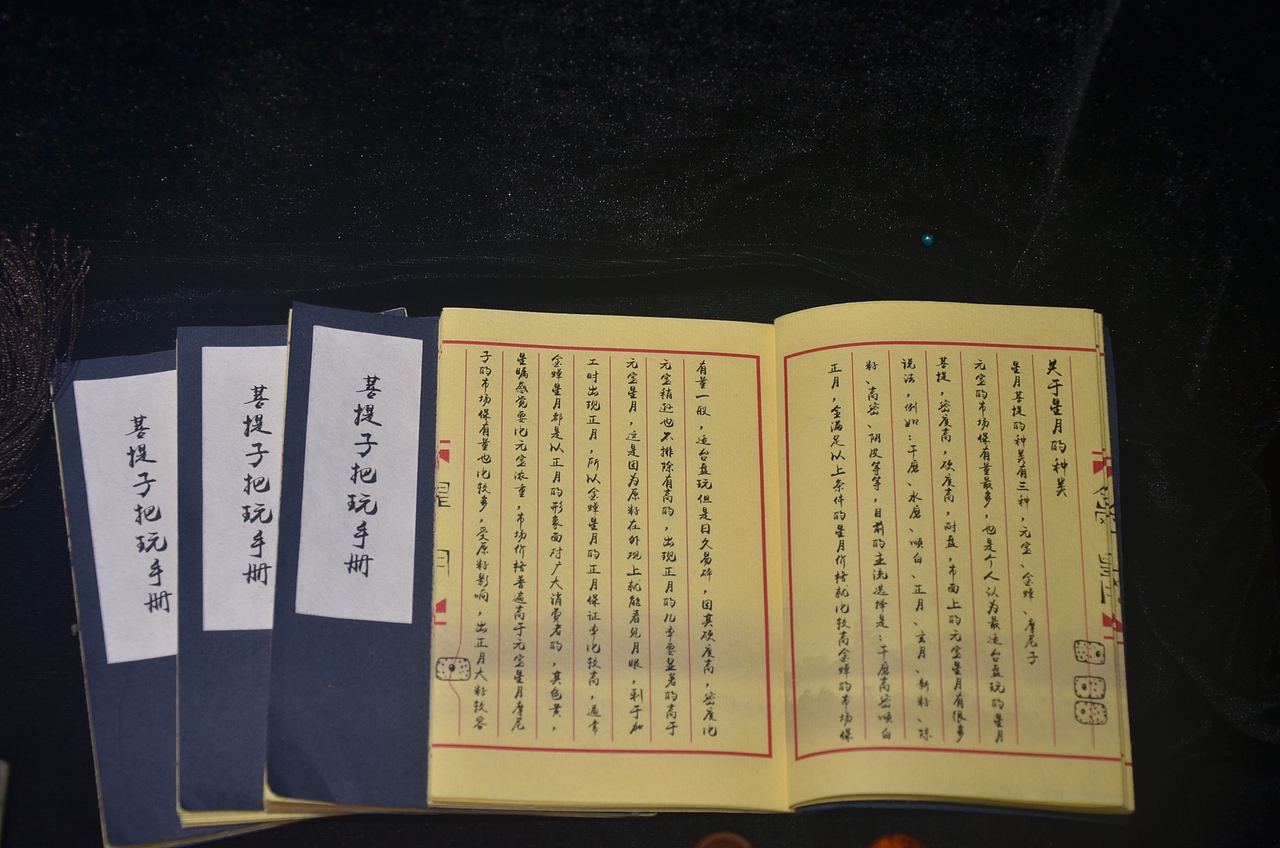 菩提子把玩手册
菩提子把玩手册
菩提子把玩手册
关于星月的种类
星月菩提的种类有三种，元宝、金蝉、摩尼子
元宝的市场保有量最多，也是个人认为最适合盘玩的星月
菩提，密度高，硬度高，耐盘，市面上的元宝星月有很多
说法，例如：干磨、水磨、顺白、正月、玄月、新籽、陈
籽、高密、阴皮等等，目前的主流选择是：干磨高密顺白
正月，金满足以上条件的星月价格就比较高金蝉的市场保
有量一般，适合盘玩但是日久易碎，因其硬度高，密度比
元宝稍逊也不排除有高的，出现正月的几率要显著的高于
元宝星月，这是因为原籽在外观上就能看见月眼，利于加
工时出现正月，所以金蝉星月的正月保证率比较高，通常
金蝉星月都是以正月的形象面对广大消费者的，其色黄，
星瞩感觉要比元宝浓重，市场价格普遍高于元宝星月摩尼
子的市场保有量也比较多，受原籽影响，出正月大籽较容